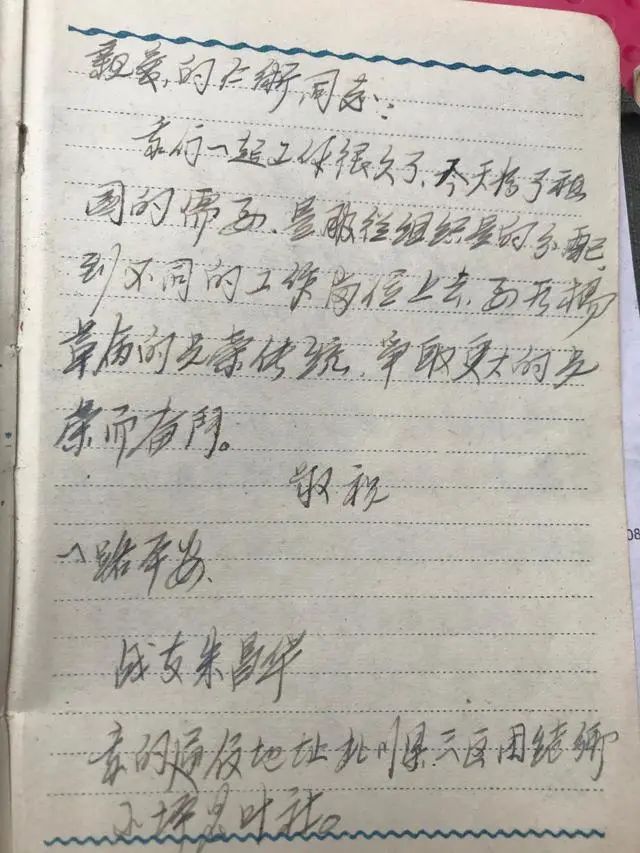 亲爱的仁衡同志:
我们一起工作很久了、今天为了祖
国的需要、是服从组织是的分配.
到不同的工作岗位上去、要发扬
革命的光荣传统、争取更大的光
荣而奋鬥。
敬祝
一路平安、
战友朱昌华
我的通信地址北川县三区团结乡
小坪农叶社。
08